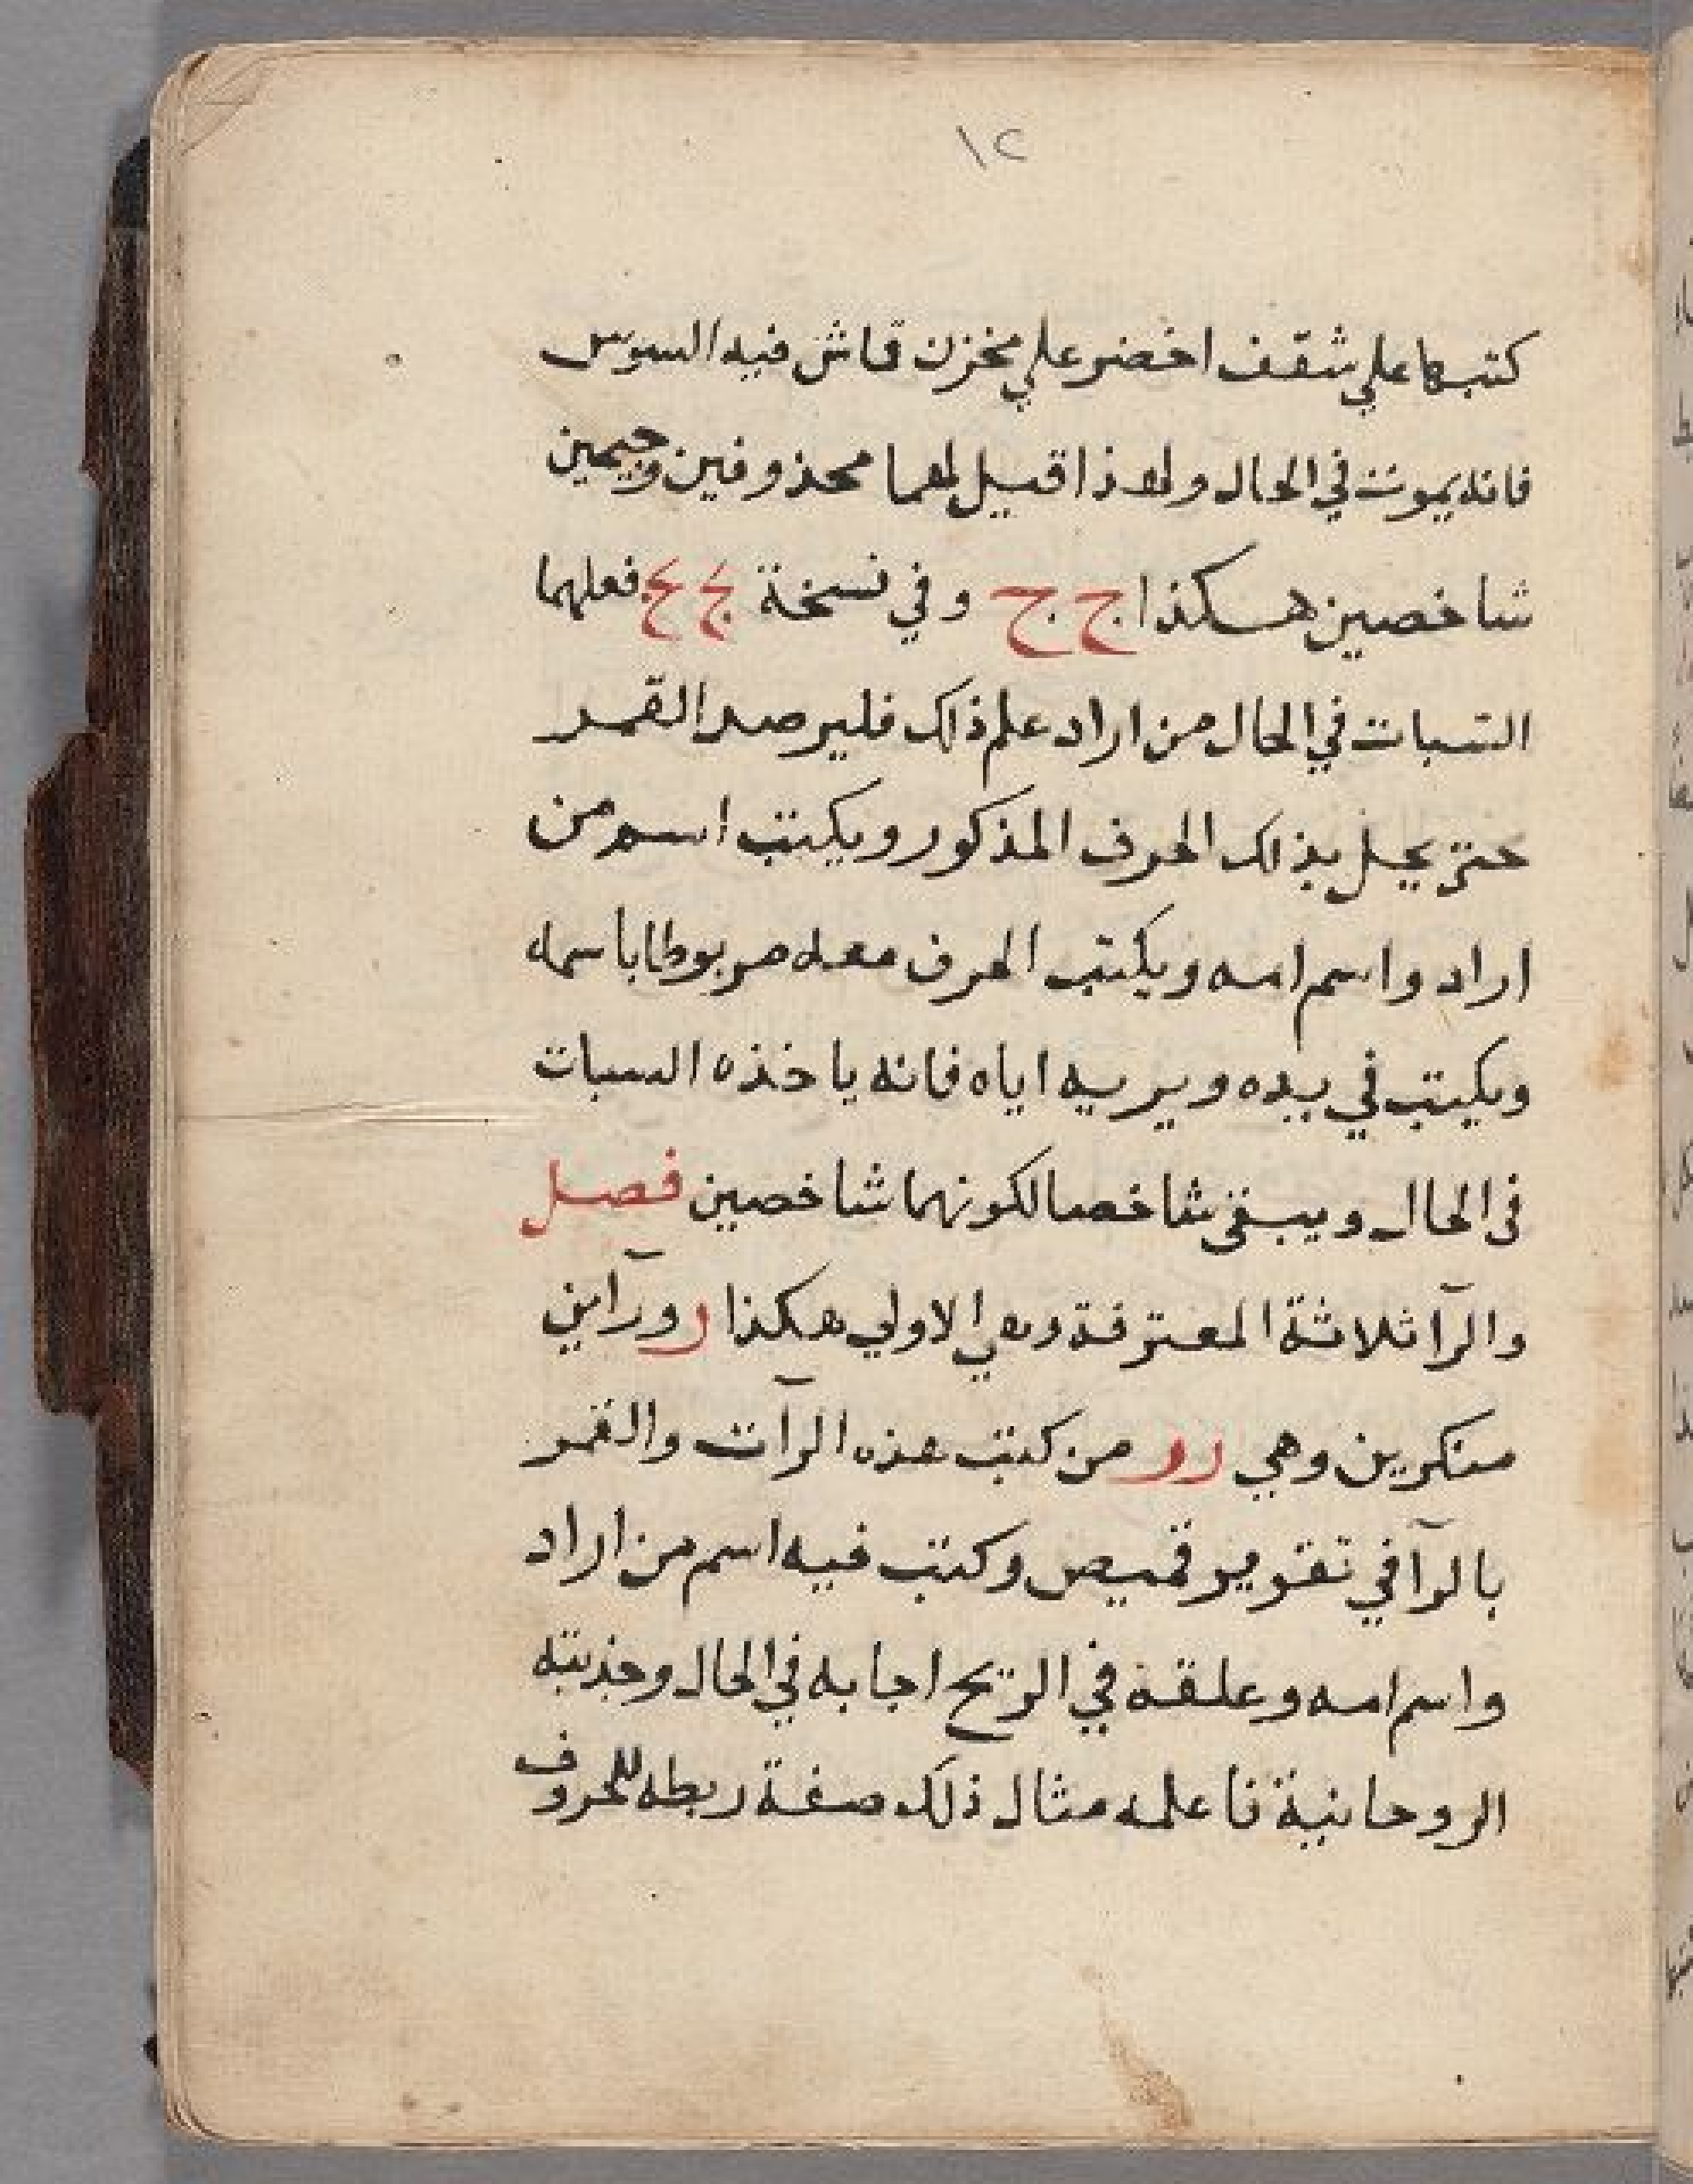 ١٢
كتبها علي شقف اخضر علي مخزن قماش فيه السوس
فانه يموت في الحال ولهذا قيل لهما محذوفين وجيمين
شاخصين هكذا ج ج وفي نسخة ج ج فعلهما
السبات في الحال من اراد علم ذلك فليرصد القمر
حتى يحل بذلك الحرف المذكور ويكتب اسم من
اراد واسم امه ويكتب الحرف معه مربوطا باسمه
ويكتب في يده ويريه اياه فانه ياخذه السبات
فى الحال ويبقى شاخصا لكونهما شاخصين فصل
والرآ ثلاثة المعترفة وهي الاولي هكذا ر ورآين
منكرين وهي ر ر من كتب هذه الرآت والقمر
بالرآ في تقوير قميص وكتب فيه اسم من اراد
واسم امه وعلقه في الريح اجابه في الحال وجذبته
الروحانية فاعلمه مثال ذلك صفة ربطه للحروف